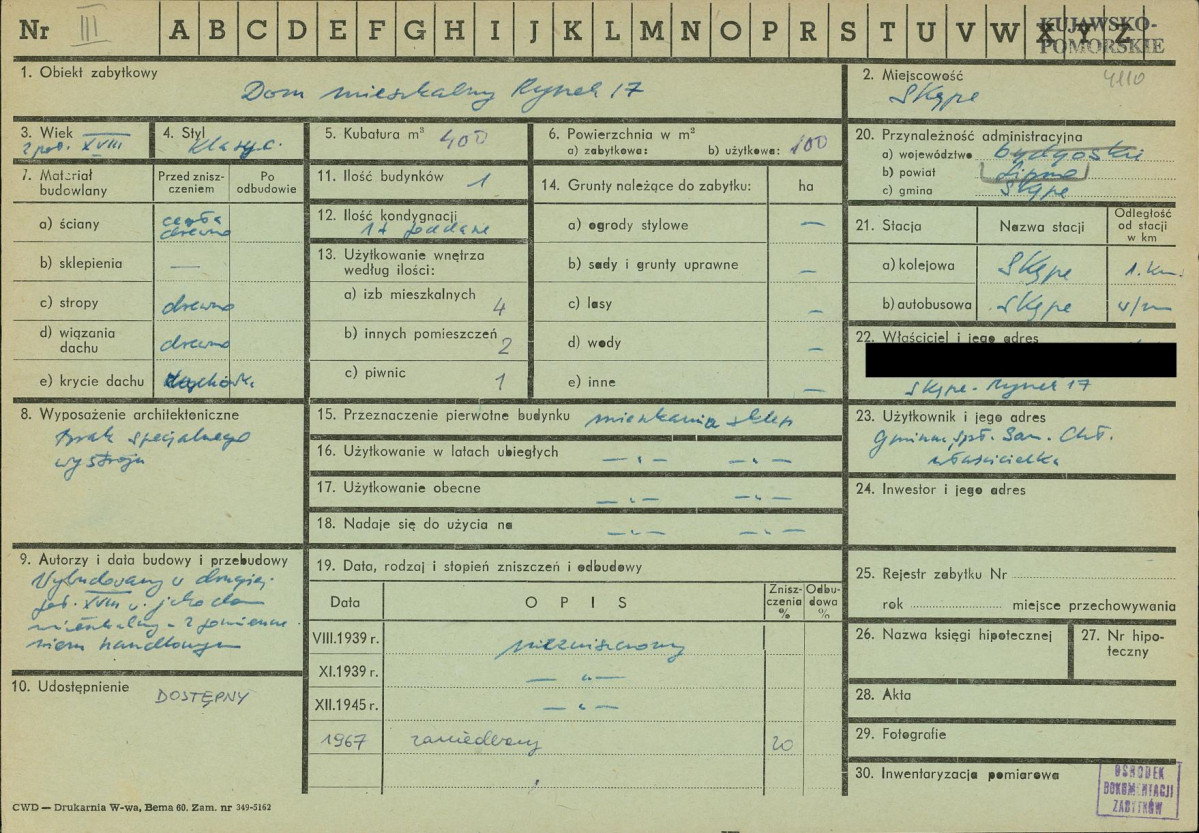 Nr III A B C D E F G H I J K L M N O P R S T U V W X Y Z
KUJAWSKO-
POMORSKIE
1. Obiekt zabytkowy
Dom mieszkalny Rynek 17
2. Miejscowość
4110
Skępe
3. Wiek
2 poł. XVIII
4. Styl
klasyc.
5. Kubatura m³ 400
6. Powierzchnia w m²
a) zabytkowa: b) użytkowa: 100
7. Materiał budowlany
Przed zniszczeniem
Po odbudowie
a) ściany cegła drewno
b) sklepienia —
c) stropy drewno
d) wiązania dachu drewno
e) krycie dachu dachówka
8. Wyposażenie architektoniczne
Brak specjalnego
wystroju
9. Autorzy i data budowy i przebudowy
Wybudowany w drugiej
poł. XVIII w. jako dom
mieszkalny z pomieszcze-
niem handlowym
10. Udostępnienie
DOSTĘPNY
11. Ilość budynków 1
12. Ilość kondygnacji
1 + poddasze
13. Użytkowanie wnętrza
według ilości:
a) izb mieszkalnych 4
b) innych pomieszczeń 2
c) piwnic 1
14. Grunty należące do zabytku: ha
a) ogrody stylowe —
b) sady i grunty uprawne —
c) lasy —
d) wody —
e) inne —
15. Przeznaczenie pierwotne budynku mieszkania sklep
16. Użytkowanie w latach ubiegłych — „ — — „ —
17. Użytkowanie obecne — „ — — „ —
18. Nadaje się do użycia na — „ — — „ —
19. Data, rodzaj i stopień zniszczeń i odbudowy
Data O P I S Zniszczenia % Odbudowa %
VIII.1939 r. niezniszczony
XI.1939 r. — „ —
XII.1945 r. — „ —
1967 zaniedbany 20
20. Przynależność administracyjna
a) województwo bydgoski
b) powiat Lipno
c) gmina Skępe
21. Stacja Nazwa stacji Odległość od stacji w km
a) kolejowa Skępe 1. km.
b) autobusowa Skępe w/m
22. Właściciel i jego adres
Skępe - Rynek 17
23. Użytkownik i jego adres
Gminna Spł. Sam. Chł.
właścicielka
24. Inwestor i jego adres
25. Rejestr zabytku Nr
rok miejsce przechowywania
26. Nazwa księgi hipotecznej
27. Nr hipoteczny
28. Akta
29. Fotografie
30. Inwentaryzacja pomiarowa
OŚRODEK
DOKUMENTACJI
ZABYTKÓW
CWD — Drukarnia W-wa, Bema 60. Zam. nr 349-5162